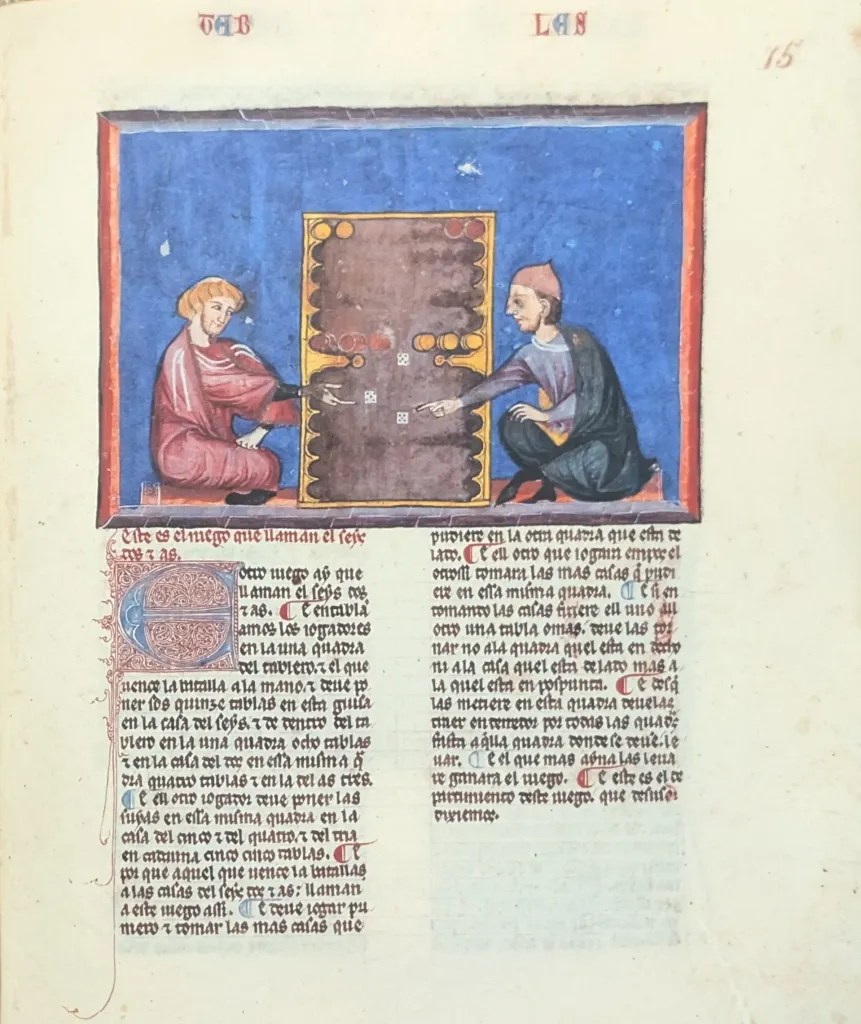 TAB LAS
15
Este es el iuego que llaman el seys
dos ⁊ as.
Otro iuego ay que
llaman el seys dos
⁊ as. ¶ E entabla
amos los iogadores
en la una quadra
del tablero. ⁊ el que
uence la batalla a la mano. ⁊ deue po
ner sus quinze tablas en esta guisa
en la casa del seys. ⁊ de dentro del ta
blero en la una quadra ocho tablas
⁊ en la casa del dos en essa misma q̃
dra quatro tablas ⁊ en la del as tres.
¶ E ell otro iogador deue poner las
suyas en essa misma quadra en la
casa del cinco ⁊ del quatro. ⁊ del tria
en cadauna cinco cinco tablas. ¶ E
por que aquel que uence la batalla
a las casas del seys dos ⁊ as; llaman
a este iuego assi. ¶ E deue iogar pri
mero ⁊ tomar las mas casas que
pudiere en la otra quadra que esta de
lado. ¶ E ell otro que iogara empos el
otrossi tomara las mas casas q̃ pudi
ere en essa misma quadra. ¶ E si en
tomando las casas firiere ell uno all
otro una tabla o mas. deue las tor
nar no a la quadra quel esta en derecho
ni a la casa quel esta de lado mas a
la quel esta en pospunta. ¶ E desq̃
las metiere en esta quadra deuelas
traer en derredor por todas las quadras
fasta aq̃lla quadra donde se deue. le
uar. ¶ E el que mas ayna las leua
re ganara el iuego. ¶ E este es el de
partimiento deste iuego. que desuso
dixiemos.